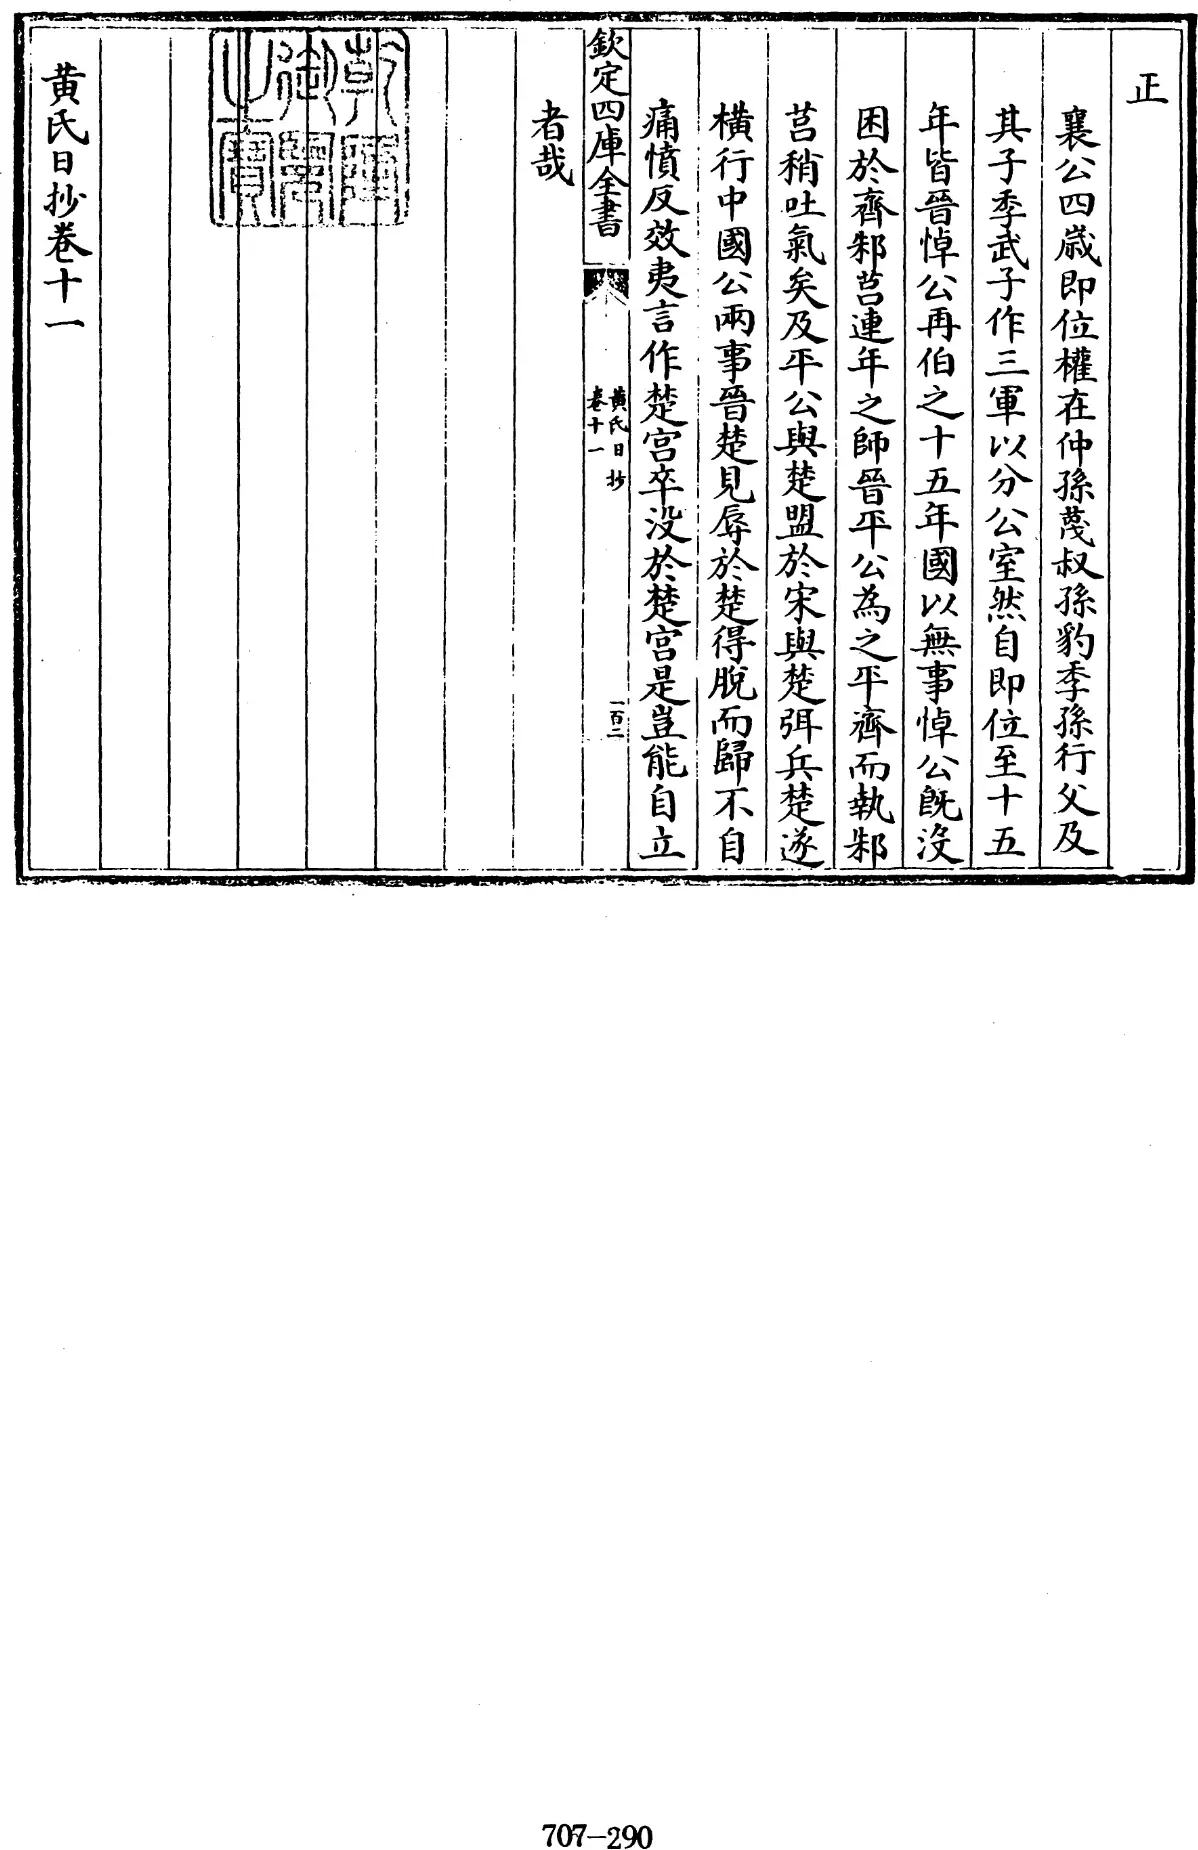 正
襄公四歲即位權在仲孫蔑叔孫豹季孫行父及
其子季武子作三軍以分公室然自即位至十五
年皆晉悼公再伯之十五年國以無事悼公旣沒
困於齊邾莒連年之師晉平公為之平齊而執邾
莒稍吐氣矣及平公與楚盟於宋與楚弭兵楚遂
橫行中國公兩事晉楚見辱於楚得脫而歸不自
痛憤反效夷言作楚宮卒沒於楚宮是豈能自立
欽定四庫全書
黃氏日抄
卷十一
一百二
者哉
乾隆御覽之寶
黃氏日抄卷十一
707-290